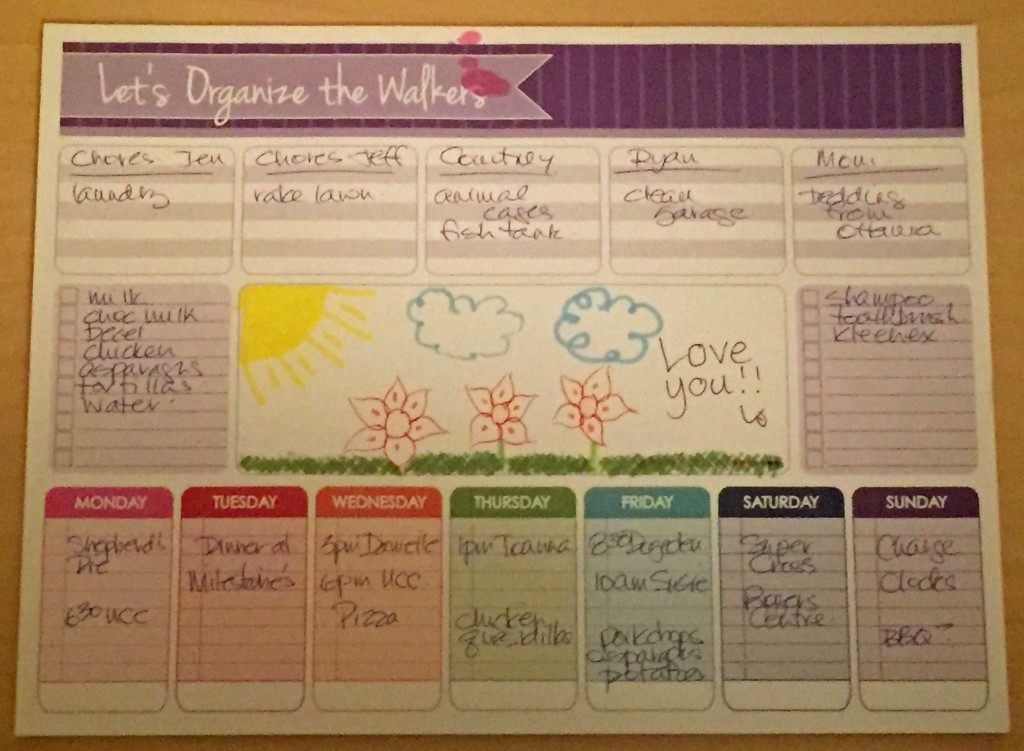 Let's Organize the Walkers
Chores Jen
laundry
Chores Jeff
rake lawn
Courtney
animal
cages
fish tank
Ryan
clean
garage
Mom
bedding
from
Ottawa
milk
choc milk
Becel
chicken
asparagus
tortillas
water
Love
you!!
shampoo
toothbrush
kleenex
MONDAY
Shepherd's
Pie
630 UCC
TUESDAY
Dinner at
Milestone's
WEDNESDAY
3pm Danielle
6pm UCC
Pizza
THURSDAY
1pm Joanna
chicken
quesidillas
FRIDAY
830
10am Susie
porkchops
asparagus
potatoes
SATURDAY
Super
Cross
Rogers
Centre
SUNDAY
Change
Clocks
BBQ?